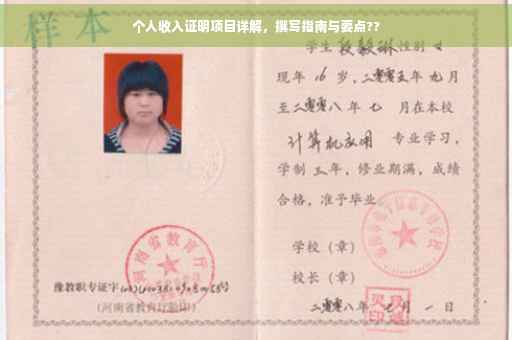 个人收入证明项目详解，撰写指南与要点??
样本
学生段毅琳性别女
现年16岁，二零零五年九月
至二零零八年七月在本校
计算机应用 专业学习，
学制三年，修业期满，成绩
合格，准予毕业。
学校（章）
校长（章）
二零零八年七月一日
河南省教育厅
豫教职专证字
（河南省教育厅验印）